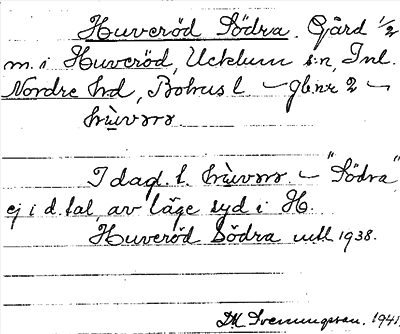 Huveröd Södra. Gård 1/2
m. i Huveröd, Ucklum s:n, Inl.
Nordre hd, Bohus l – gb.nr 2 –
I dagl. t. – "Södra"
ej i d. tal, av läge syd i H.
Huveröd Södra 1938.
DM Svenningsson. 1941